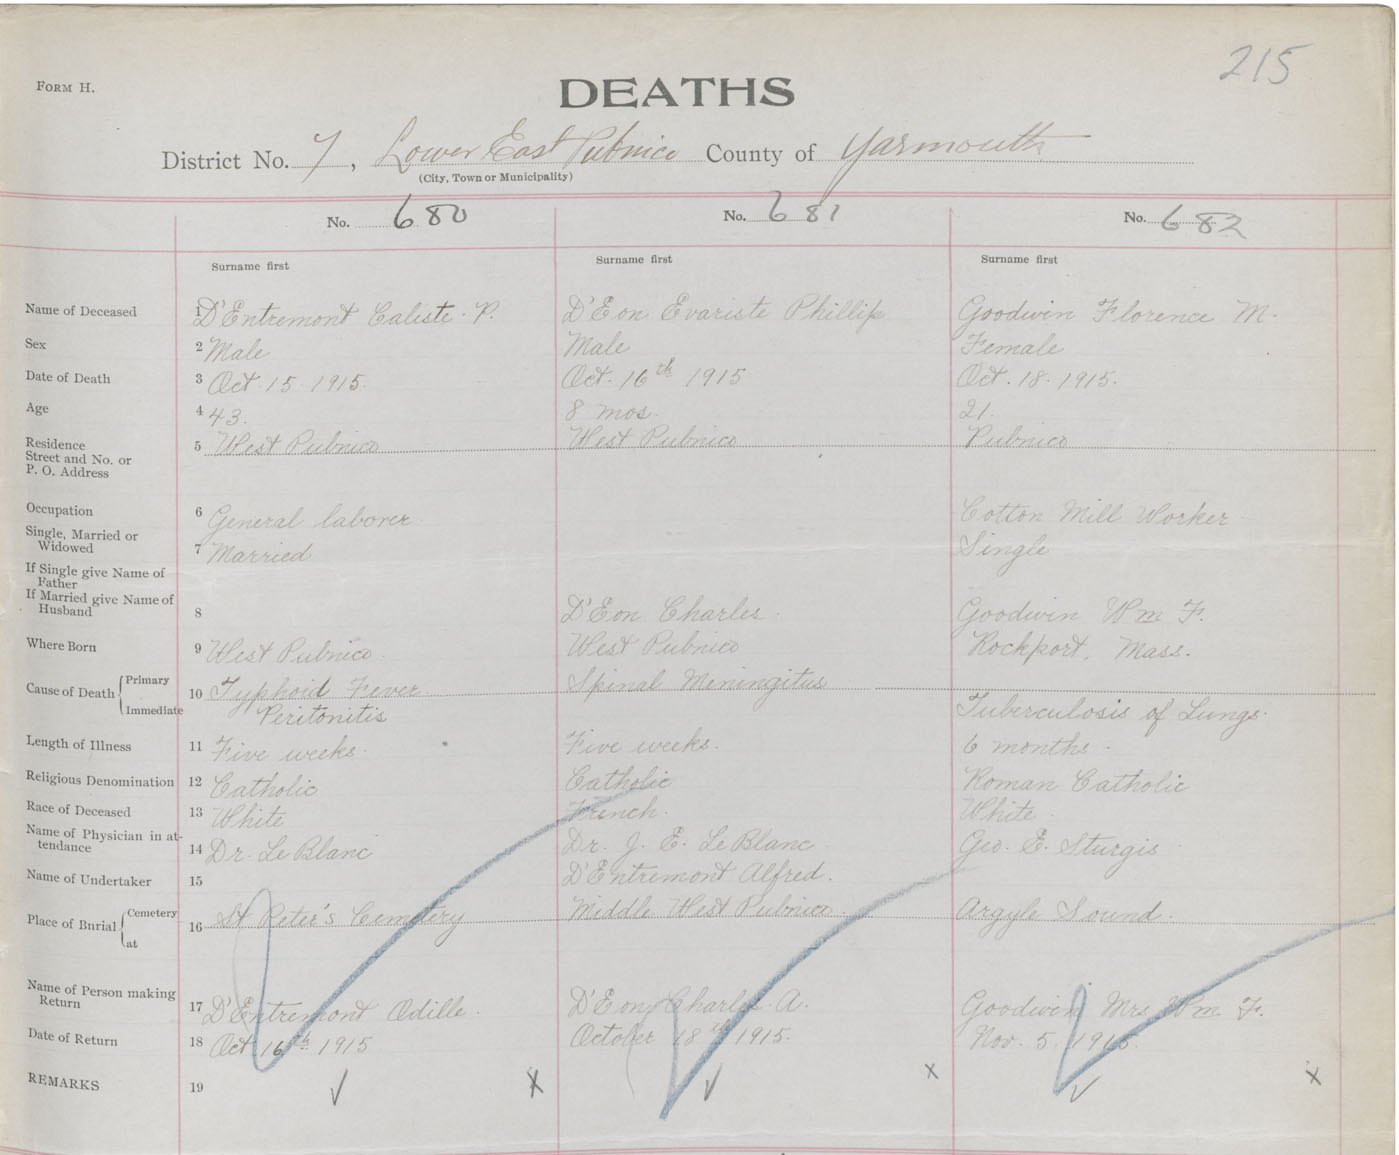 215
FORM H.
DEATHS
District No. 7, Lower East Pubnico County of Yarmouth
(City, Town or Municipality)
No. 680 No. 681 No. 682
Surname first Surname first Surname first
Name of Deceased 1 D'Entremont Caliste P. D'Eon Evariste Phillip Goodwin Florence M.
Sex 2 Male Male Female
Date of Death 3 Oct. 15 1915. Oct. 16th 1915 Oct. 18. 1915.
Age 4 43. 8 mos. 21.
Residence
Street and No. or
P. O. Address 5 West Pubnico West Pubnico Pubnico
Occupation 6 General laborer Cotton Mill Worker
Single, Married or
Widowed 7 Married Single
If Single give Name of
Father
If Married give Name of
Husband 8 D'Eon Charles. Goodwin Wm F.
Where Born 9 West Pubnico West Pubnico Rockport, Mass.
Cause of Death Primary 10 Typhoid Fever Spinal Meningitus
Immediate Peritonitis Tuberculosis of Lungs.
Length of Illness 11 Five weeks. Five weeks. 6 months.
Religious Denomination 12 Catholic Catholic Roman Catholic
Race of Deceased 13 White French. White
Name of Physician in at-
tendance 14 Dr. LeBlanc Dr. J. E. LeBlanc Geo. E. Sturgis
Name of Undertaker 15 D'Entremont Alfred.
Place of Burial Cemetery
at 16 St Peter's Cemetery Middle West Pubnico Argyle Sound.
Name of Person making
Return 17 D'Entremont Odille. D'Eon Charles A. Goodwin Mrs Wm F.
Date of Return 18 Oct 16th 1915 October 18th 1915. Nov. 5 1915.
REMARKS 19 ✓ x ✓ x ✓ x